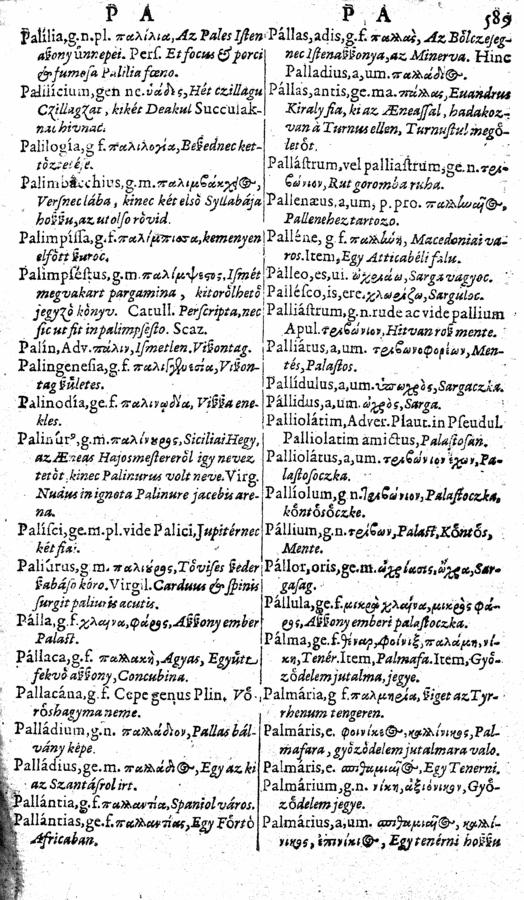 P A
P A 589
Palília,g.n.pl. παλίλια, Az Pales Iſten
aſſony ünnepei. Perſ. Et focus & porci
& fumoſa Palilia fœno.
Palilícium, gen nc. ὑάδες, Hét czillagu
Czillagzat, kikét Deakul Succulak-
nac hivnac.
Palilogía, g f. παλιλογία, Beſzednec ket-
Palimbácchius, g.m. παλιμβάκχιος,
Verſnec lába, kinec két elsö Syllabája
hoſſu, az utolſo rövid.
Palimpíſſa, g.f. παλίμπισσα, kemenyen
elfött ſzuroc.
Palimpſéſtus, g.m. παλίμψεςος, Iſmét
megvakart pargamina, kitorölhetö
jegyzö könyv. Catull. Perſcripta, nec
ſic ut fit in palimpſeſto. Scaz.
Palín, Adv. πάλιν, Iſmetlen. Viſzontag.
Palingeneſia, g.f. παλιγγενεσία, Viſzon-
tag ſzületes.
Palinodía, ge.f. παλινῳδία, Viſſza ene-
kles.
Palinúrꝰ, g.m. παλίνουρος, Siciliai Hegy,
az Æneas Hajosmeſtereröl igy nevez
tetöt, kinec Palinurus volt neve. Virg.
Nudus in ignota Palinure jacebis are-
na.
Palíſci, ge.m.pl. vide Palici, Jupitérnec
két fiai.
Paliúrus, g m. παλίουρος, Töviſes ſzeder
ſzabáſo kóro. Virgil. Carduus & ſpinis
ſurgit paliuris acutis.
Pálla, g.f. χλαῖνα, φάρος, Aſſony ember
Palaſt.
Pállaca, g.f. παλλακὴ, Agyas, Együtt
fekvö aſſony, Concubina.
Pallacána, g.f. Cepe genus Plin. Vö-
röshagyma neme.
Palládium, g.n. παλλάδιον, Pallas bál-
vány képe.
Palládius, ge.m. παλλάδιος, Egy az ki
az Szantáſrol irt.
Pallántia, g.f. παλλαντία, Spaniol város.
Pallántias, ge.f. παλλαντίας, Egy Förtö
Africaban.
Pállas, adis, g.f. παλλὰς, Az Bölczeſeg-
nec Iſtenaſſzonya, az Minerva. Hinc
Palladius, a, um. παλλάδιος.
Pállas, antis, ge.ma. πάλλας, Euandrus
Kiraly fia, ki az Æneaſſal, hadakoz-
van à Turnus ellen, Turnuſtul megö-
letöt.
Palláſtrum, vel palliaſtrum, ge.n. τρι-
βώνιον, Rut goromba ruha.
Pallenæus, a, um, p. pro. παλλωαῖος,
Pallenehez tartozo.
Palléne, g f. παλλώη, Macedoniai va-
ros. Item, Egy Atticabéli falu.
Pálleo, es, ui. ὠχριάω, Sarga vagyoc.
Palléſco, is, ere. χλωρίζω, Sarguloc.
Palliáſtrum, g.n. rude ac vide pallium
Apul. τριβώνιον, Hitvan roſz mente.
Palliátus, a, um. τριβωνοφορίων, Men-
tés, Palaſtos.
Pallídulus, a, um. ὕπωχρος, Sargaczka.
Pállidus, a, um. ὠχρὸς, Sarga.
Palliolátim, Adver. Plaut. in Pſeudul.
Palliolatim amictus, Palaſtoſan.
Palliolátus, a, um. τριβώνιον ἔχων, Pa-
laſtoſoczka.
Pallíolum, g n. τριβώνιον, Palaſtoczka,
köntösöczke.
Pállium, g.n. τρίβων, Palaſt, Köntös,
Mente.
Pállor, oris, ge.m. ὠχρίασις, ὤχρα, Sar-
gaſag.
Pállula, ge.f. μικρὰ χλαῖνα, μικρὸς φά-
ρος, Aſſony emberi palaſtoczka.
Pálma, ge.f. θέναρ, φοῖνιξ, παλάμη, νί-
κη, Tenér. Item, Palmafa. Item, Gyö-
zödelem jutalma, jegye.
Palmária, g f. παλμηρία, ſziget az Tyr-
rhenum tengeren.
Palmáris, e. φοινίκειος, καλλίνικος, Pal-
mafara, gyözödelem jutalmara valo.
Palmáris, e. σπιθαμιαῖος, Egy Tenerni.
Palmárium, g.n. νίκη, ἀξιόνικον, Gyö-
zödelem jegye.
Palmárius, a, um. σπιθαμιαῖος, καλλί-
νικος, ἐπινίκιος, Egy tenérni hoſſu